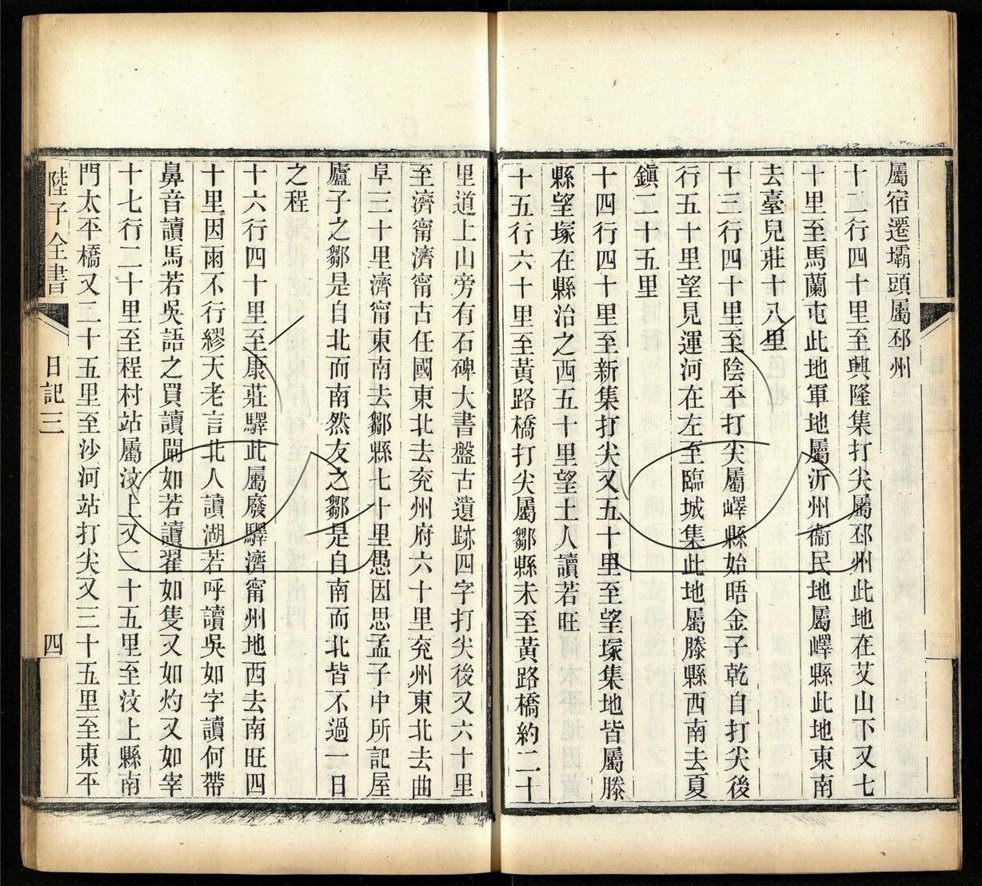 屬宿遷壩頭屬邳州
十二行四十里至興隆集打尖屬邳州此地在艾山下又七
十里至馬蘭屯此地軍地屬沂州衞民地屬嶧縣此地東南
去臺兒莊十八里
十三行四十里至陰平打尖屬嶧縣始晤金子乾自打尖後
行五十里望見運河在左至臨城集此地屬滕縣西南去夏
鎮二十五里
十四行四十里至新集打尖又五十里至望塚集地皆屬滕
縣望塚在縣治之西五十里望土人讀若旺
十五行六十里至黃路橋打尖屬鄒縣未至黃路橋約二十
里道上山旁有石碑大書盤古遺跡四字打尖後又六十里
至濟甯濟甯古任國東北去兖州府六十里兖州東北去曲
阜三十里濟甯東南去鄒縣七十里愚因思孟子中所記屋
廬子之鄒是自北而南然友之鄒是自南而北皆不過一日
之程
十六行四十里至康莊驛此屬廢驛濟甯州地西去南旺四
十里因雨不行繆天老言北人讀湖若呼讀吳如字讀何帶
鼻音讀馬若吳語之買讀鬧如若讀翟如隻又如灼又如宰
十七行二十里至程村站屬汶上又二十五里至汶上縣南
門太平橋又二十五里至沙河站打尖又三十五里至東平
陸子全書
日記三
四